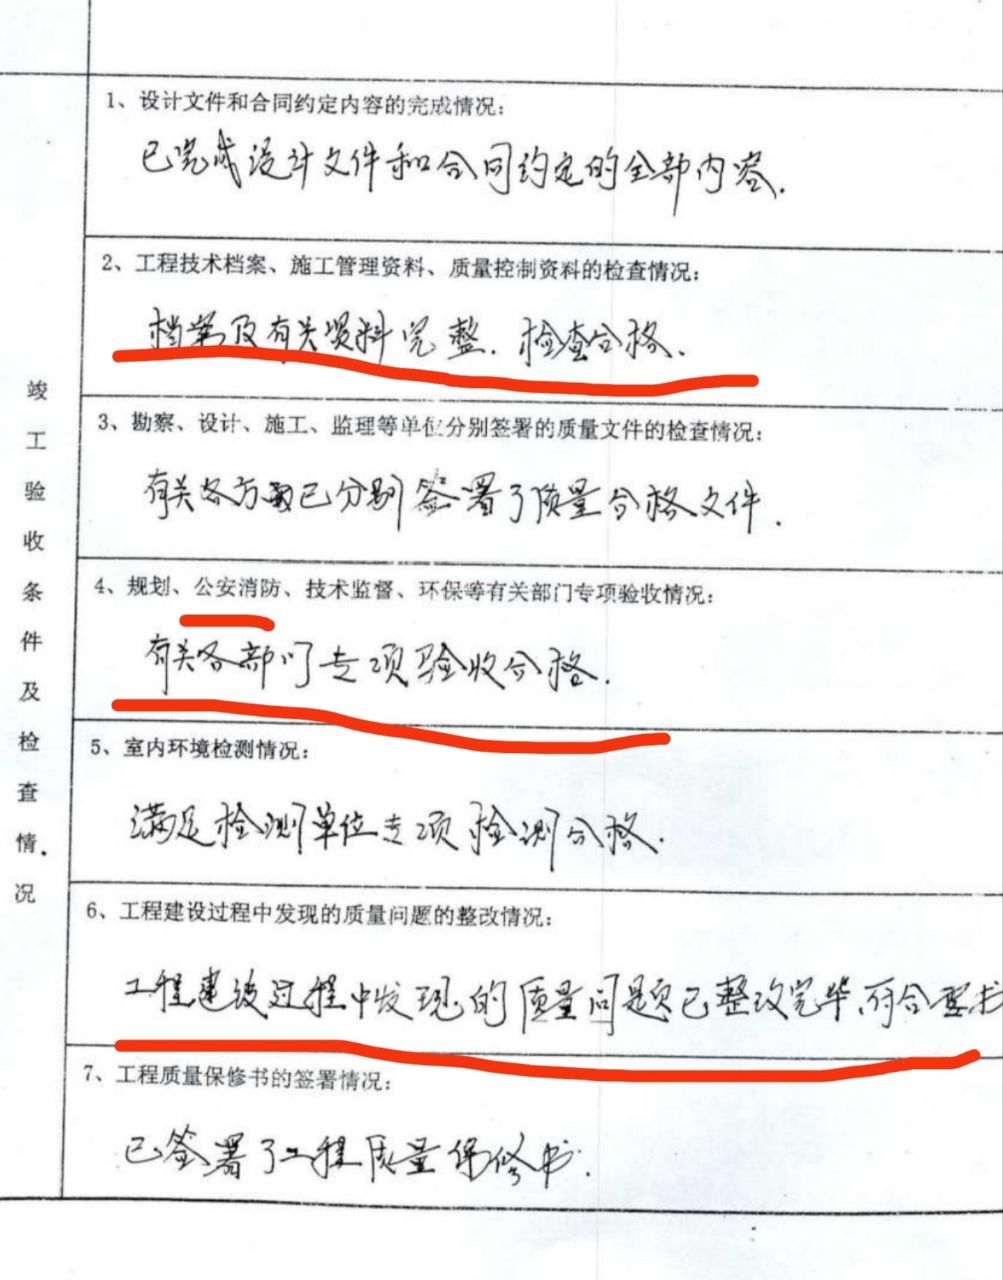 竣工验收条件及检查情况
1、设计文件和合同约定内容的完成情况：
已完成设计文件和合同约定的全部内容.
2、工程技术档案、施工管理资料、质量控制资料的检查情况：
档案及有关资料完整.检查合格.
3、勘察、设计、施工、监理等单位分别签署的质量文件的检查情况：
有关各方已分别签署了质量合格文件.
4、规划、公安消防、技术监督、环保等有关部门专项验收情况：
有关各部门专项验收合格.
5、室内环境检测情况：
满足检测单位专项检测合格.
6、工程建设过程中发现的质量问题的整改情况：
工程建设过程中发现的质量问题已整改完毕,符合要求
7、工程质量保修书的签署情况：
已签署了工程质量保修书.